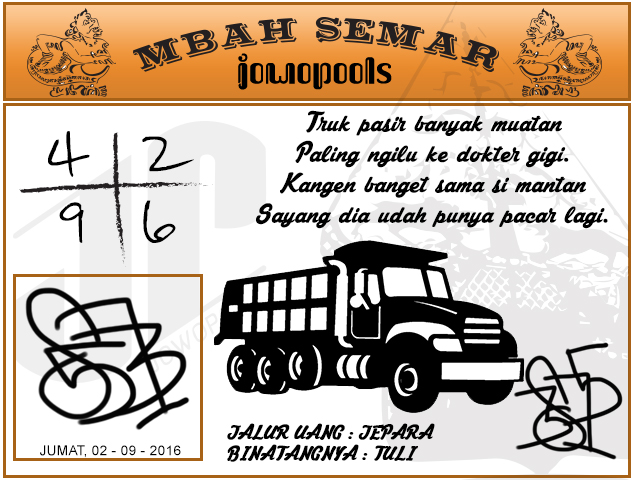 MBAH SEMAR
jowopools
4 2
9 6
Truk pasir banyak muatan
Paling ngilu ke dokter gigi.
Kangen banget sama si mantan
Sayang dia udah punya pacar lagi.
JUMAT, 02 - 09 - 2016
JALUR UANG : JEPARA
BINATANGNYA : TULI